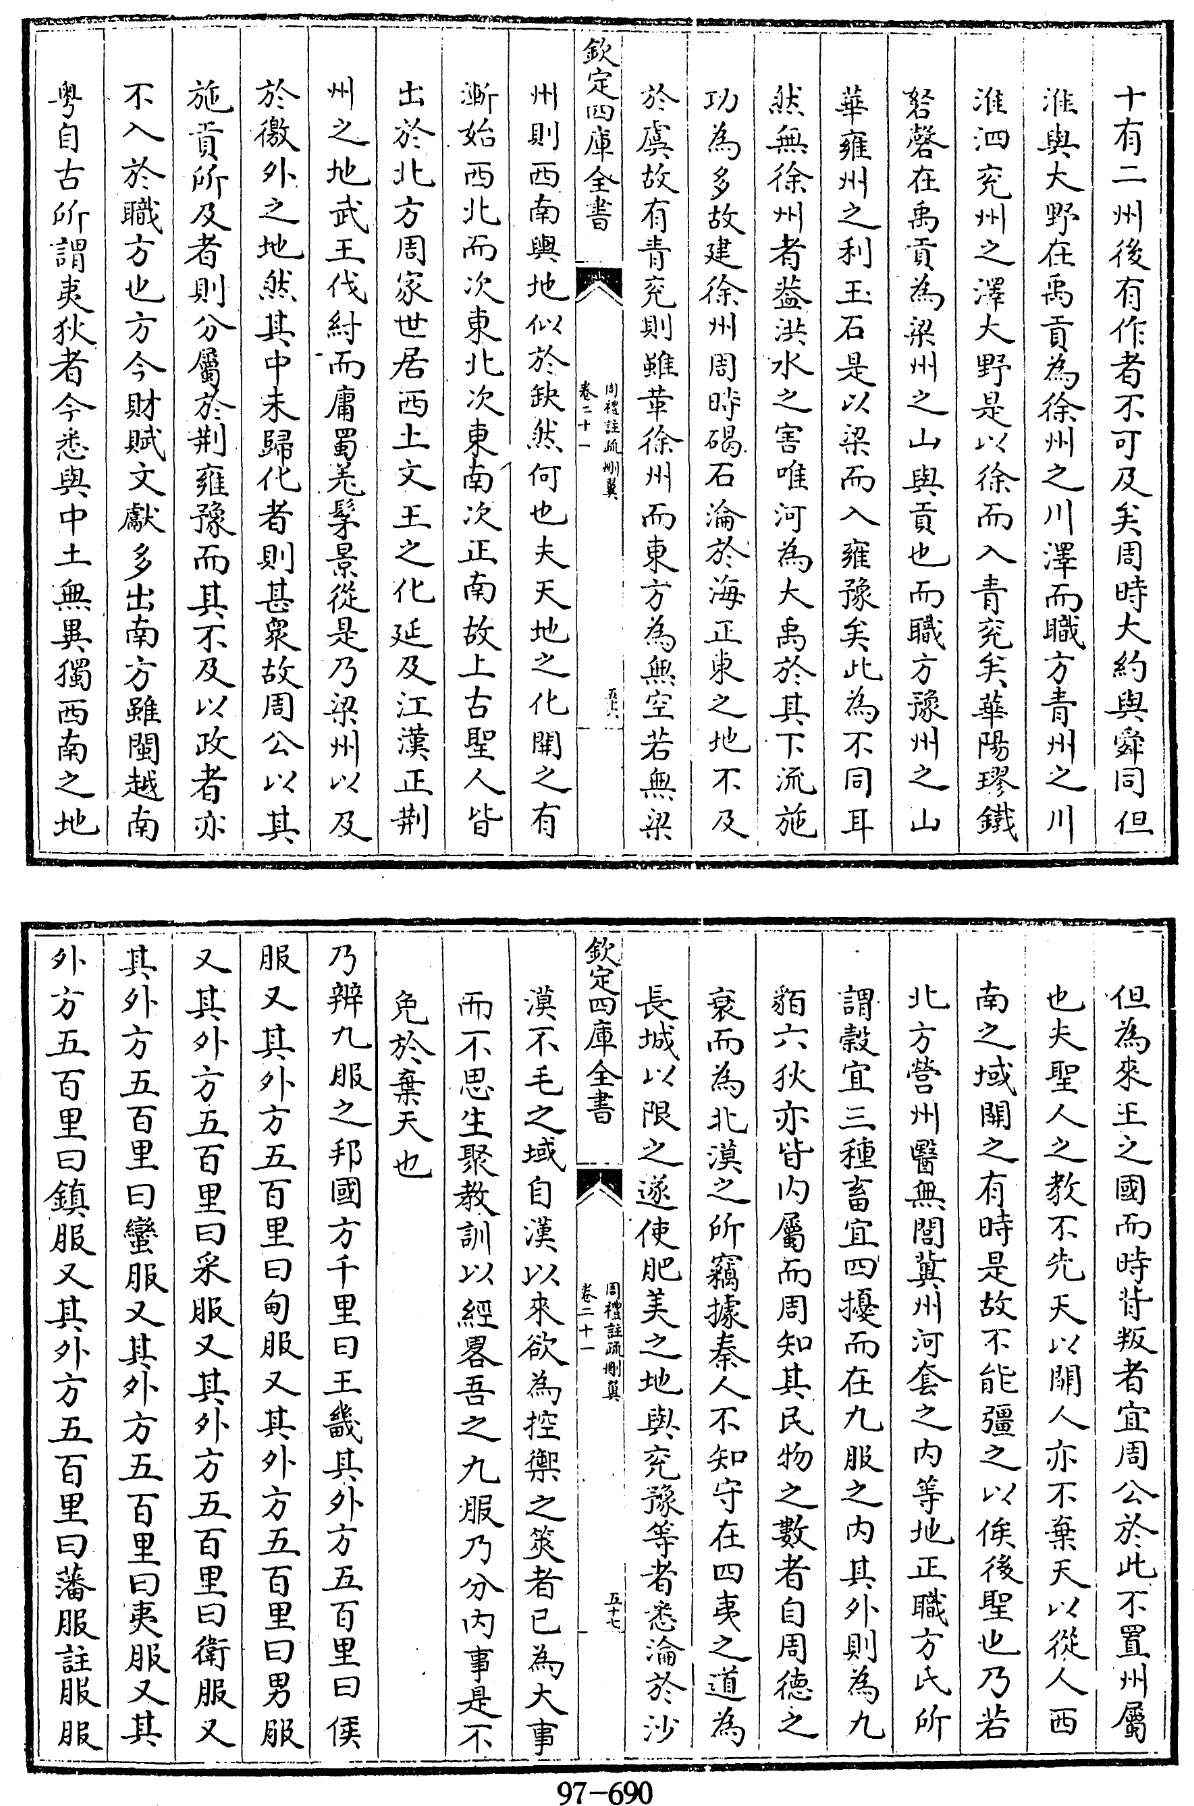 十有二州後有作者不可及矣周時大約與舜同但
淮與大野在禹貢為徐州之川澤而職方青州之川
淮泗兖州之澤大野是以徐而入青兖矣華陽璆鐵
砮磬在禹貢為梁州之山與貢也而職方豫州之山
華雍州之利玉石是以梁而入雍豫矣此為不同耳
然無徐州者葢洪水之害唯河為大禹於其下流施
功為多故建徐州周時碣石淪於海正東之地不及
於虞故有青兖則雖革徐州而東方為無空若無梁
欽定四庫全書
周禮註疏刪翼
卷二十一
五十六
州則西南輿地似於缺然何也夫天地之化開之有
漸始西北而次東北次東南次正南故上古聖人皆
出於北方周家世居西土文王之化延及江漢正荆
州之地武王伐紂而庸蜀羌髳景從是乃梁州以及
於徼外之地然其中未歸化者則甚衆故周公以其
施貢所及者則分屬於荆雍豫而其不及以政者亦
不入於職方也方今財賦文獻多出南方雖閩越南
粤自古所謂夷狄者今悉與中土無異獨西南之地
但為來王之國而時背叛者宜周公於此不置州屬
也夫聖人之教不先天以開人亦不棄天以從人西
南之域開之有時是故不能彊之以俟後聖也乃若
北方營州醫無閭冀州河套之内等地正職方氏所
謂穀宜三種畜宜四擾而在九服之内其外則為九
貊六狄亦皆内屬而周知其民物之數者自周德之
衰而為北漠之所竊據秦人不知守在四夷之道為
長城以限之遂使肥美之地與兖豫等者悉淪於沙
欽定四庫全書
周禮註疏刪翼
卷二十一
五十七
漠不毛之域自漢以來欲為控禦之筴者已為大事
而不思生聚教訓以經畧吾之九服乃分内事是不
免於棄天也
乃辨九服之邦國方千里曰王畿其外方五百里曰侯
服又其外方五百里曰甸服又其外方五百里曰男服
又其外方五百里曰采服又其外方五百里曰衛服又
其外方五百里曰蠻服又其外方五百里曰夷服又其
外方五百里曰鎮服又其外方五百里曰藩服註服服
97-690